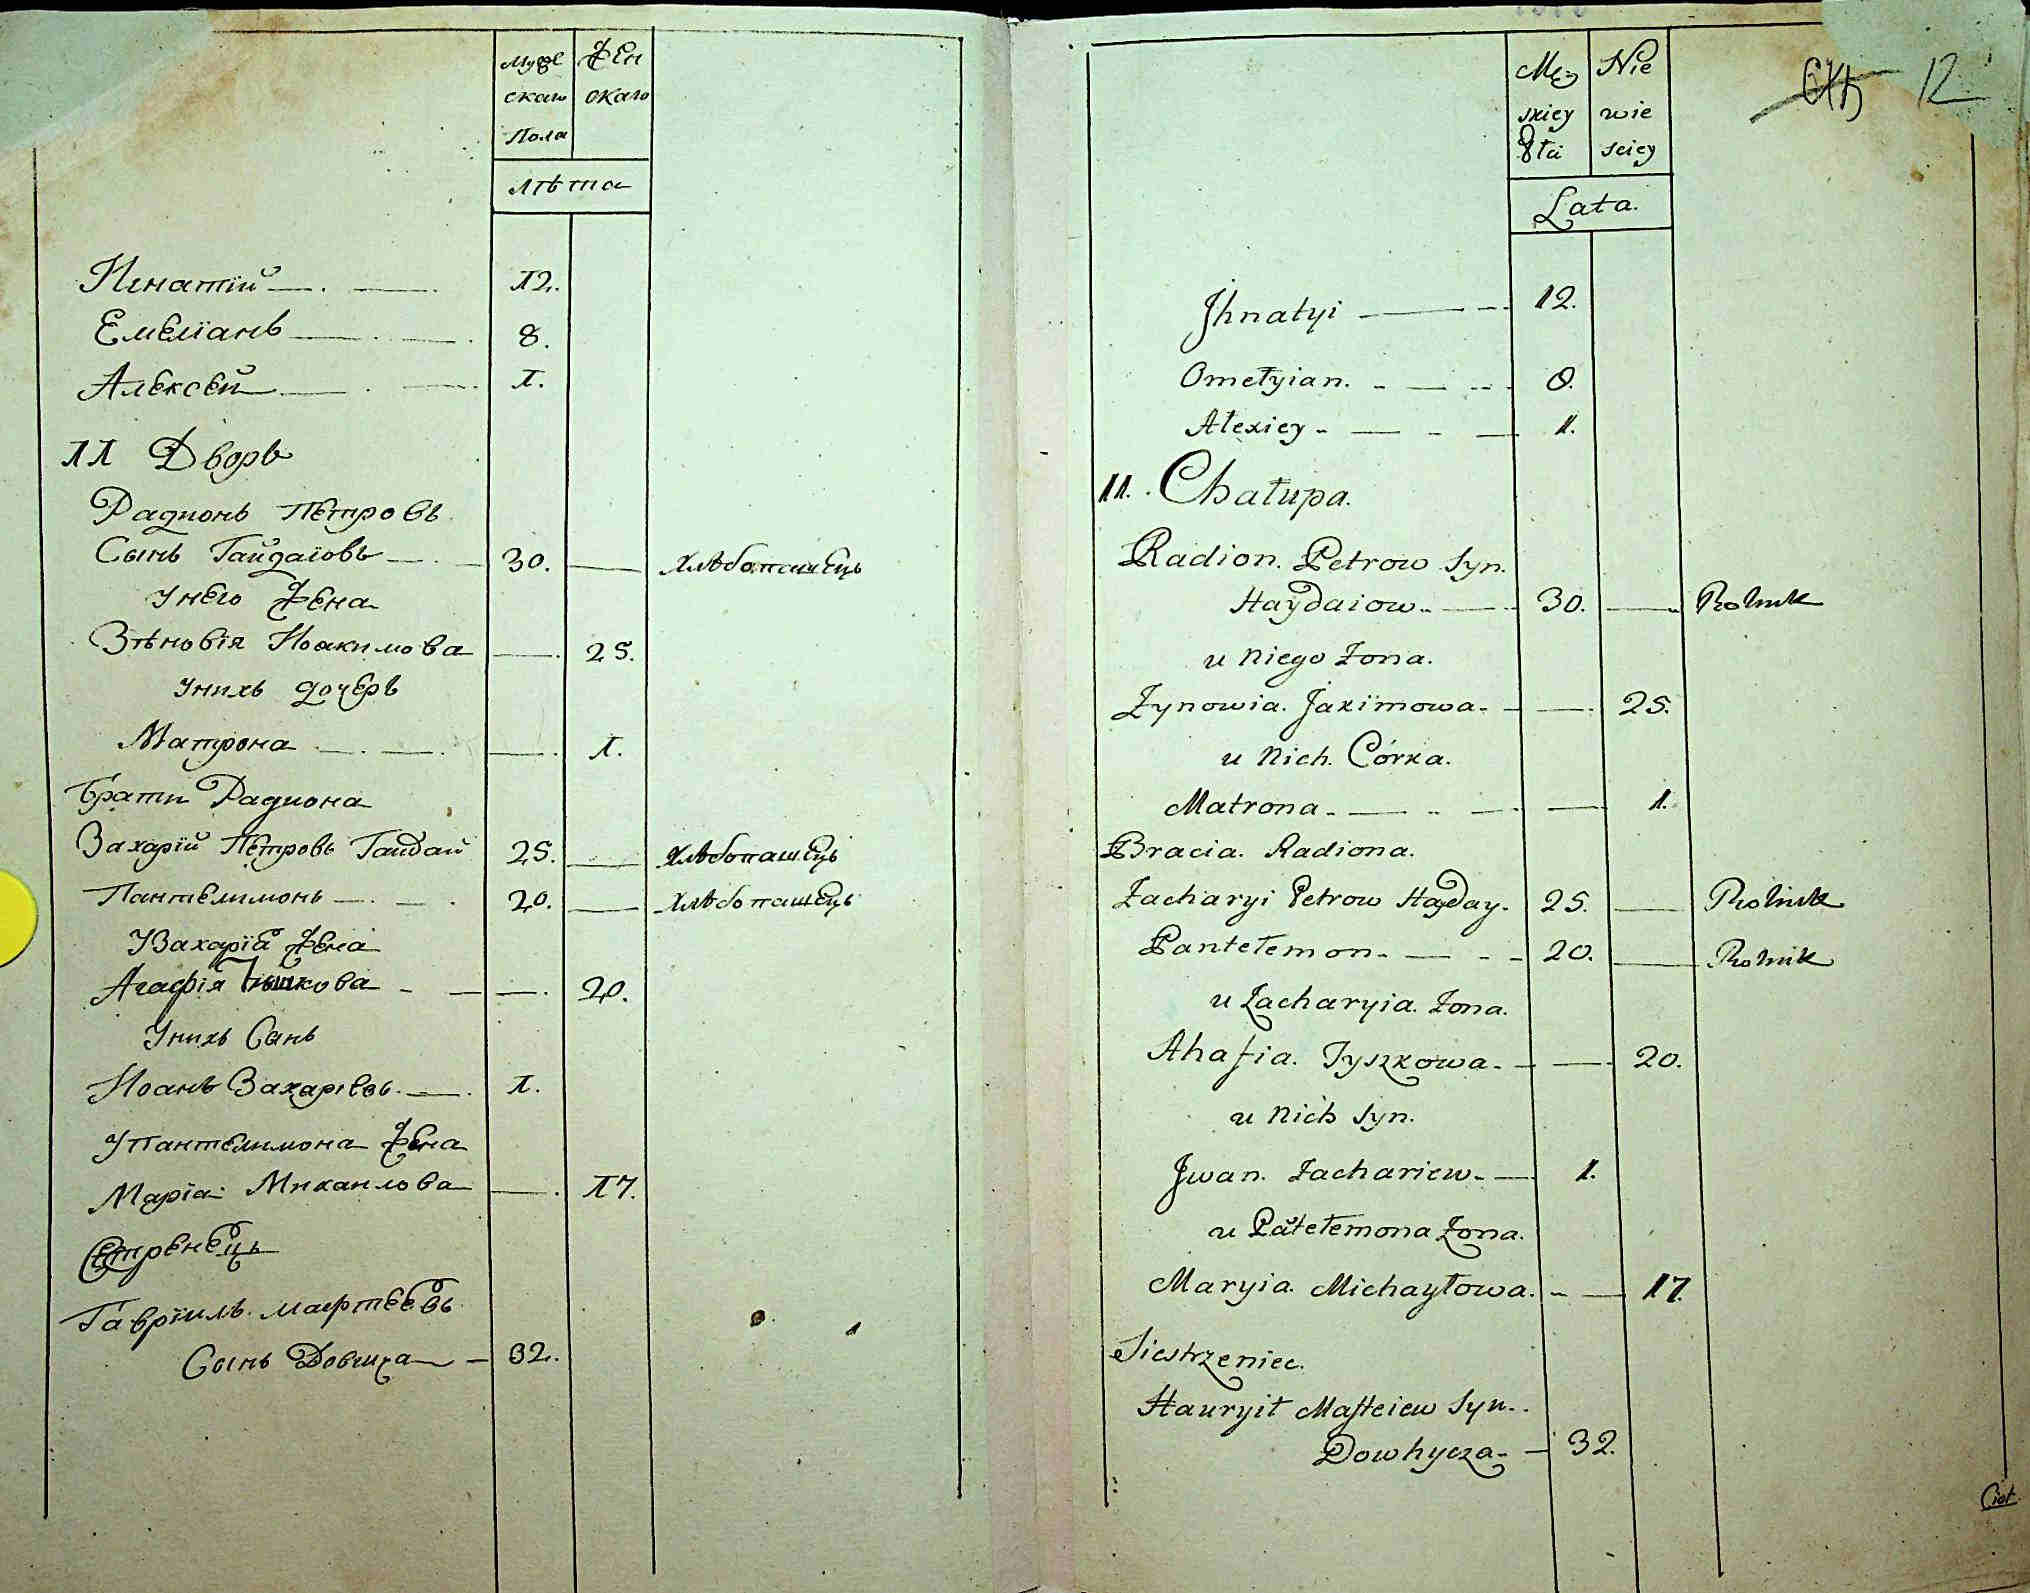 Муже Жен
скаго скаго
Пола
лѣта
Игнатїй 12.
Емелїанъ 8.
Алексѣй 1.
11 Дворъ
Радионъ Петровъ
Сынъ Гайдаїовъ 30. хлѣбопашецъ
унего жена
Зѣновїя Иоакимова 25.
унихъ дочерь
Матрона 1.
Брати Радиона
Захарїй Петровъ Гайдай 25. хлѣбопашецъ
Пантелимонъ 20. хлѣбопашецъ
УЗахарїа жена
Агафїя Тишкова 20.
Унихъ Сынъ
Иоанъ Захарїевъ 1.
Упантелимона жена
Марїа Михаилова 17.
Сестренецъ
Гаврїилъ Мафтеевъ
Сынъ Довгича 32.
12
Męz Nie
skiey wie
Płci sciey
Lata.
Jhnatyi 12.
Omełyian. 8.
Ałexiey 1.
11. Chałupa.
Radion. Petrow Syn.
Haydaiow 30. Rolnik
u niego Żona.
Zynowia. Jakimowa 25.
u Nich. Córka.
Matrona 1.
Bracia. Radiona.
Zacharyi Petrow Hayday. 25. Rolnik
Pantełemon 20. Rolnik
u Zacharyia. Żona.
Ahafia. Tyszkowa 20.
u Nich Syn.
Jwan. Zachariew 1.
u Patełemona Żona.
Maryia. Michayłowa. 17.
Siestrzeniec.
Hauryił Mafteiew Syn.
Dowhycza 32.
Ciot